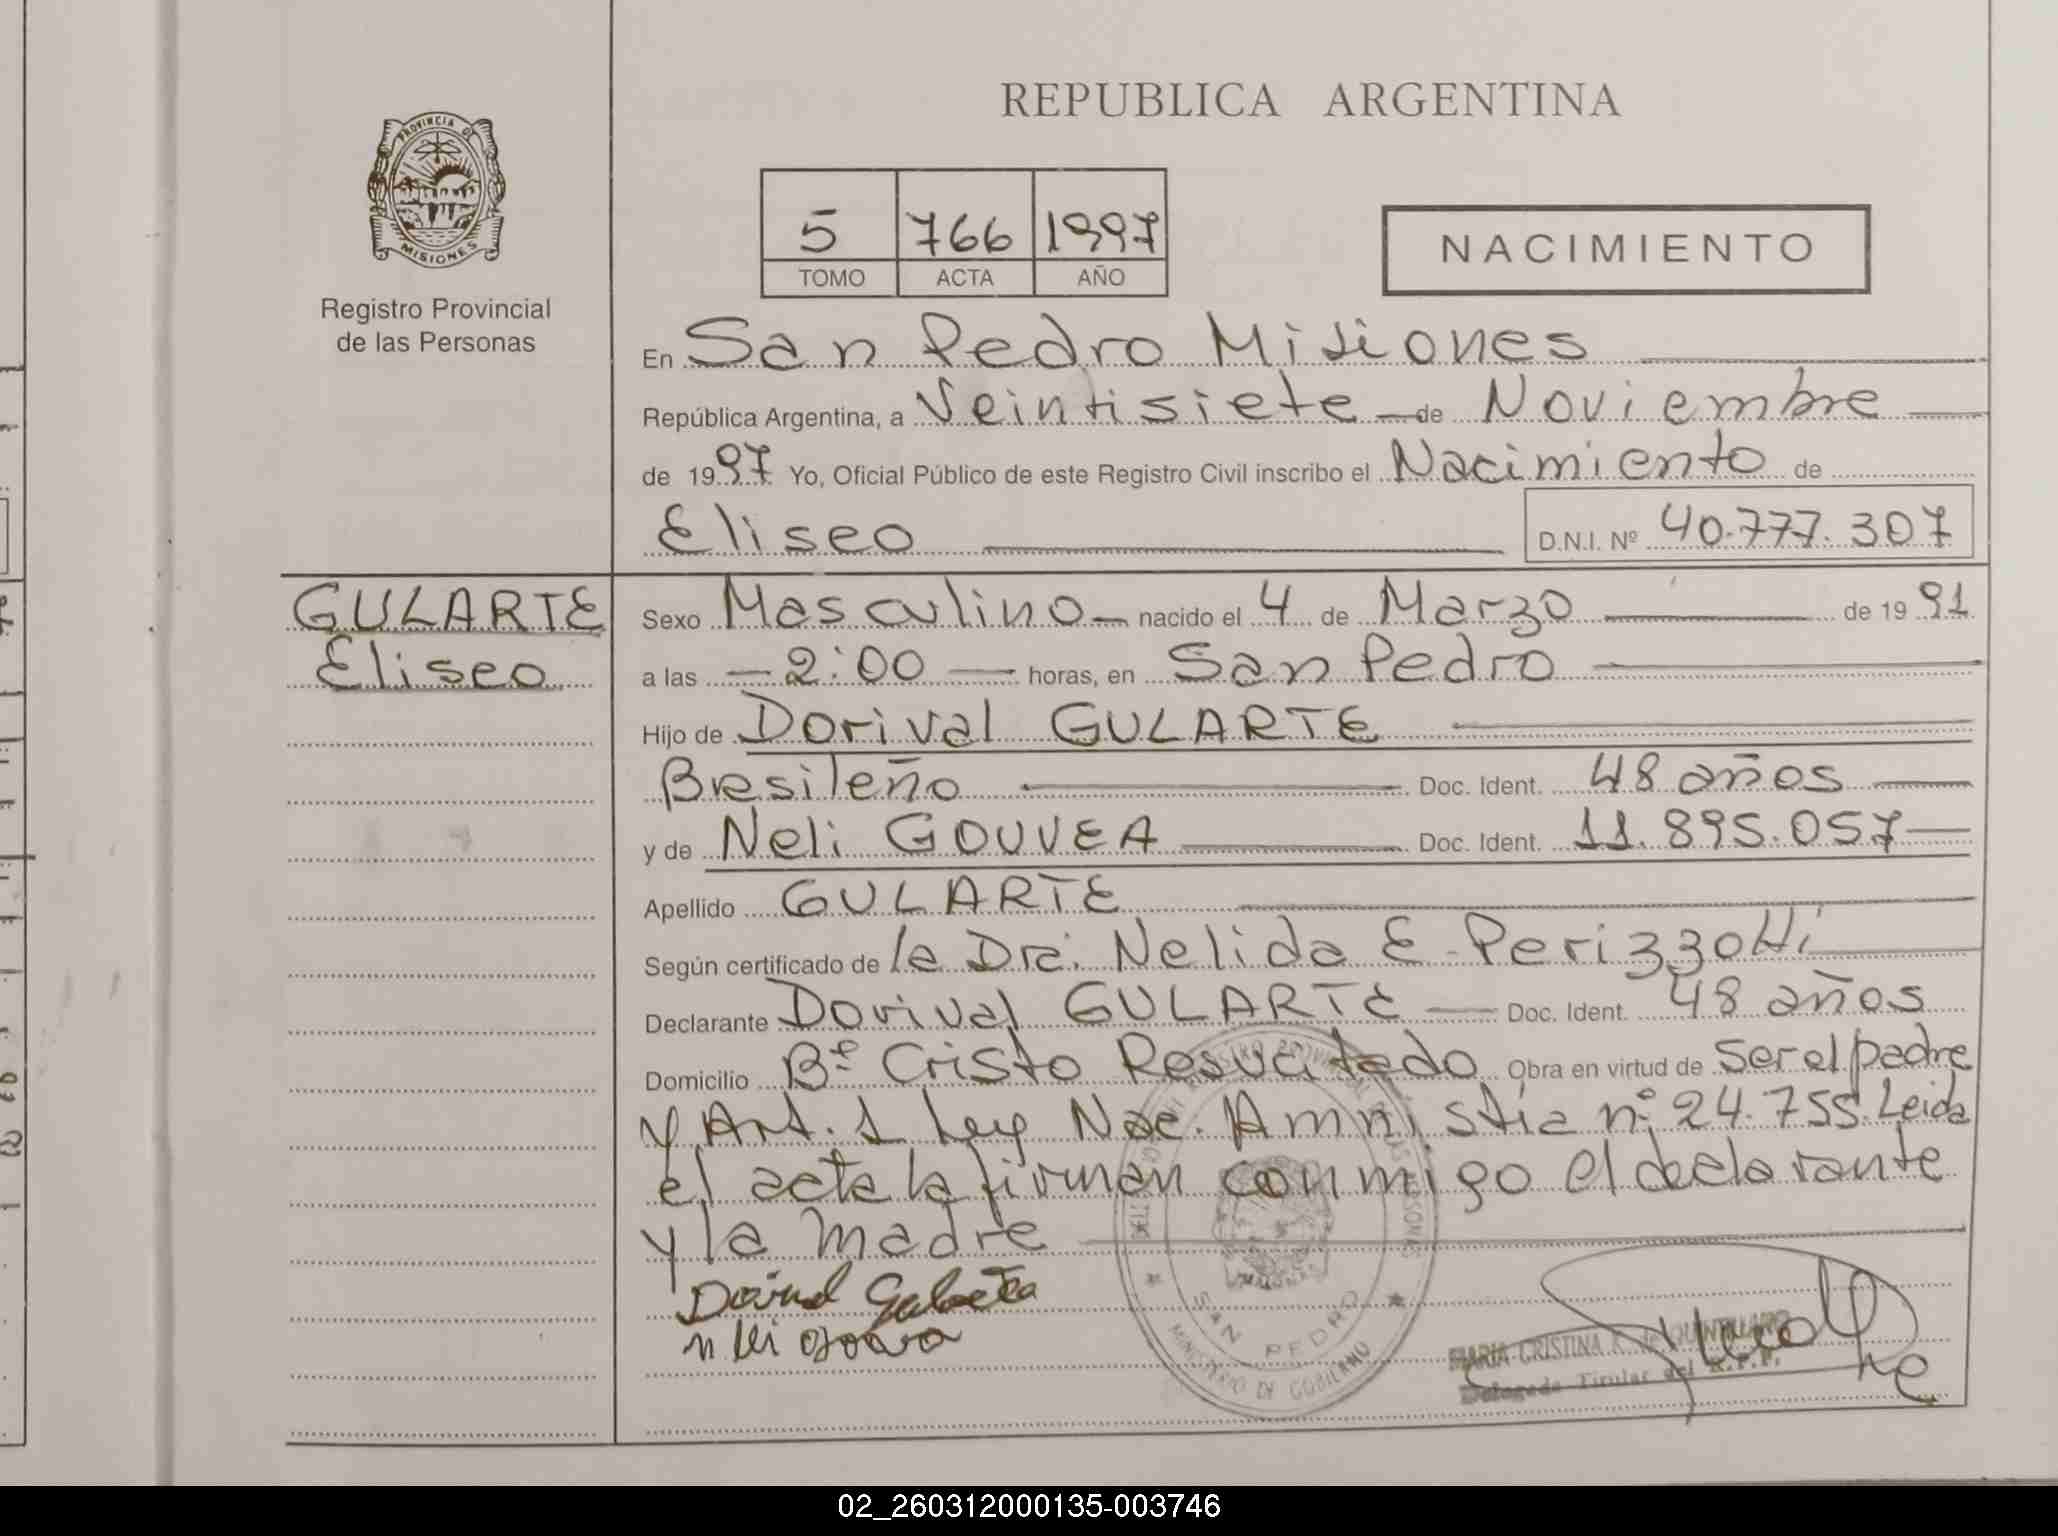 REPUBLICA ARGENTINA
PROVINCIA DE
MISIONES
Registro Provincial
de las Personas
5 766 1997
TOMO ACTA AÑO
NACIMIENTO
En San Pedro Misiones
República Argentina, a Veintisiete de Noviembre
de 1997 Yo, Oficial Público de este Registro Civil inscribo el Nacimiento de
Eliseo D.N.I. Nº 40.777.307
GULARTE
Eliseo
Sexo Masculino nacido el 4 de Marzo de 1991
a las 2:00 horas, en San Pedro
Hijo de Dorival GULARTE
Brasileño Doc. Ident. 48 años
y de Neli GOUVEA Doc. Ident. 11.895.057
Apellido GULARTE
Según certificado de la Dra. Nelida E. Perizzotti
Declarante Dorival GULARTE Doc. Ident. 48 años
Domicilio Bº Cristo Resucitado Obra en virtud de Ser el padre
y Art. 1 Ley Nac. Amnistia nº 24.755. Leida
el acta la firman conmigo el declarante
y la madre
SAN PEDRO
MINISTERIO DE GOBIERNO
MARIA CRISTINA K. de QUINTILIANO
Delegada Titular del R.P.P.
02_260312000135-003746